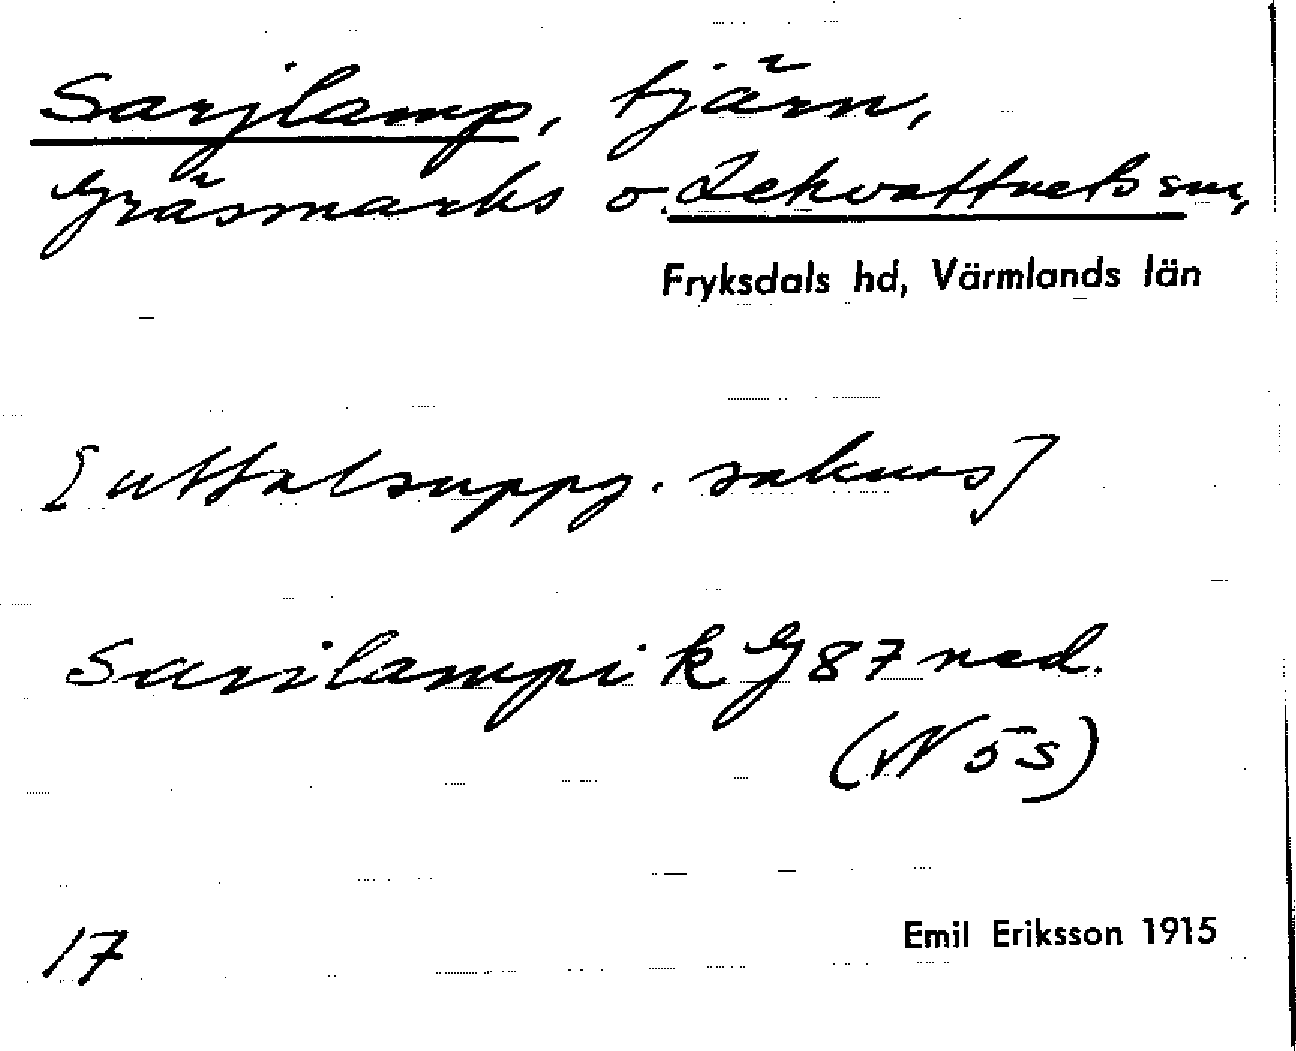 Sarjlamp, tjärn,
Gräsmarks o. Lekvattnets snr,
Fryksdals hd, Värmlands län
[uttalsuppg. saknas]
Surilampi k G 87 ned.
(N 5 s)
17
Emil Eriksson 1915